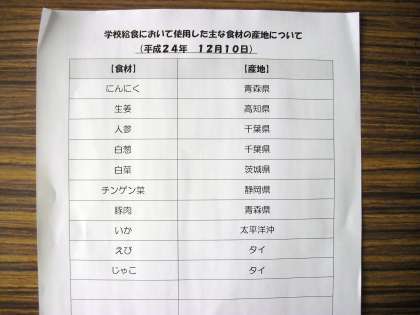 学校給食において使用した主な食材の産地について
(平成24年 12月10日)
【食材】 【産地】
にんにく 青森県
生姜 高知県
人参 千葉県
白葱 千葉県
白菜 茨城県
チンゲン菜 静岡県
豚肉 青森県
いか 太平洋沖
えび タイ
じゃこ タイ